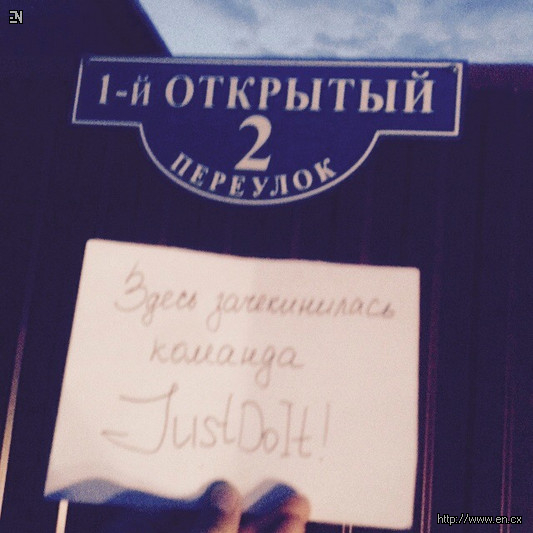 EN
1-й ОТКРЫТЫЙ
2
ПЕРЕУЛОК
Здесь зачекинилась
команда
JustDoIt!
http://www.en.cx